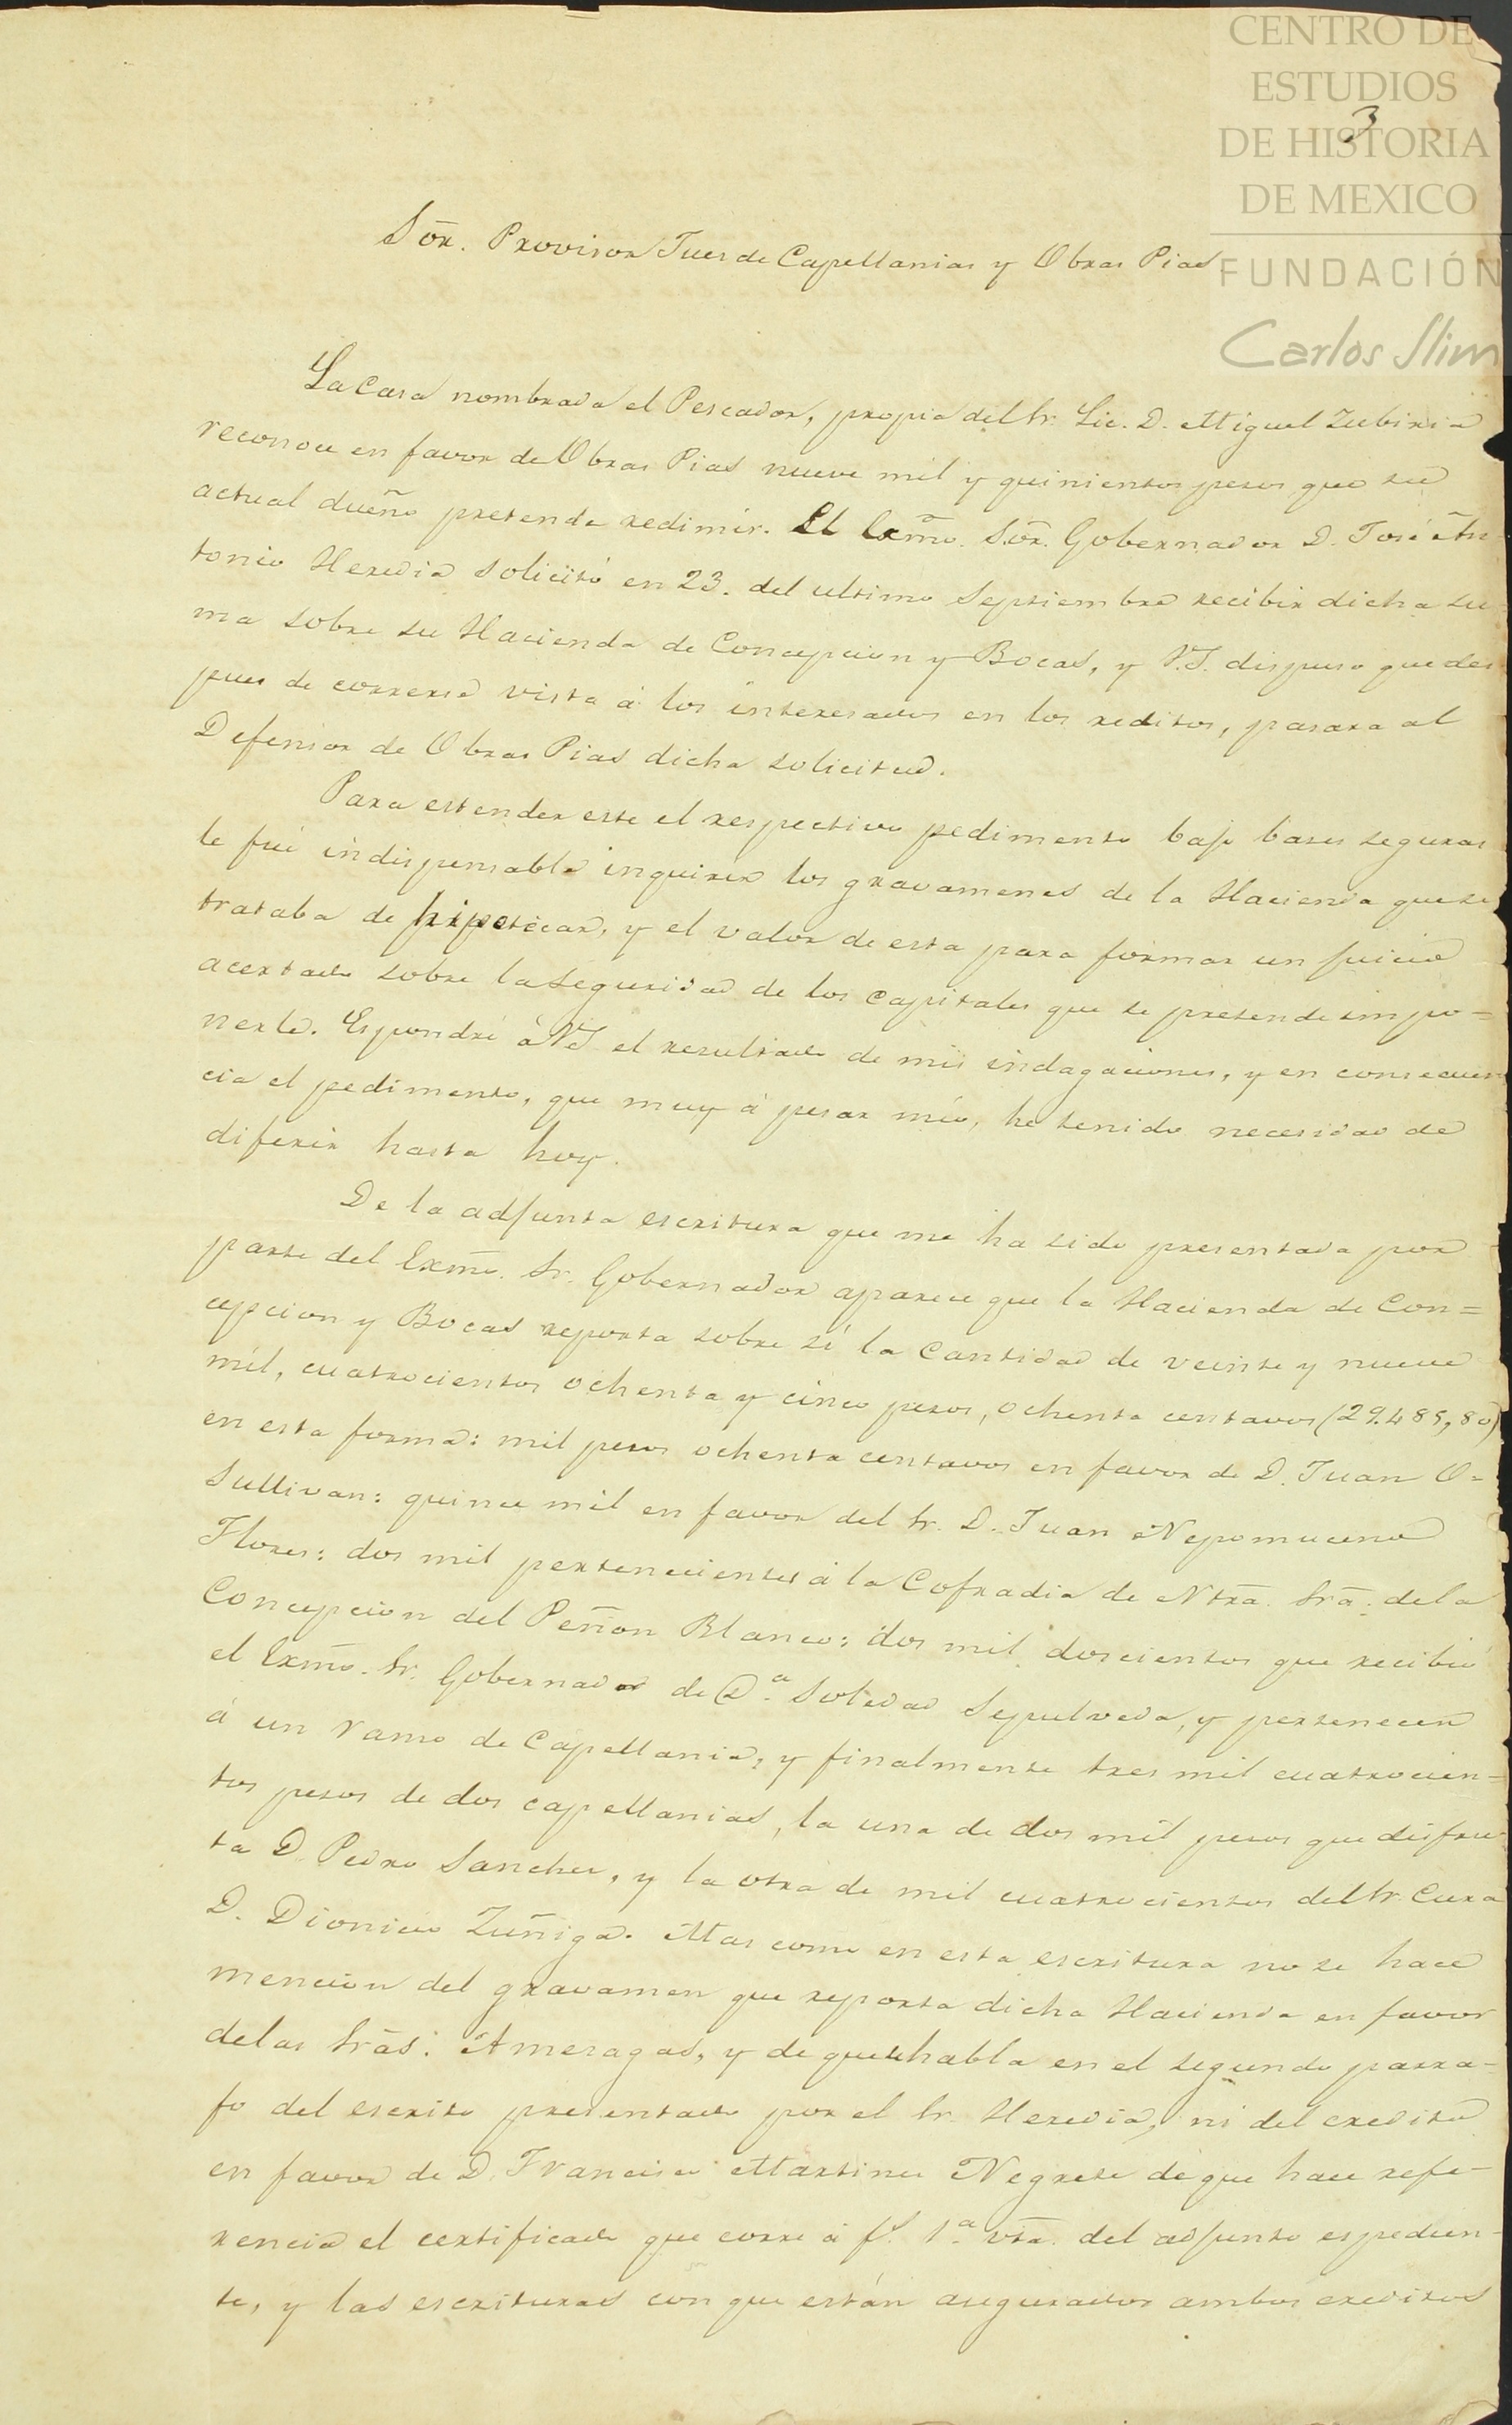 CENTRO DE
ESTUDIOS
DE HISTORIA
DE MEXICO
FUNDACIÓN
Carlos Slim
3
Sōr. Provisor Jues de Capellanias y Obras Pias
La Casa nombrada el Pescador, propia del Sr. Lic. D. Miguel Zubiria
reconoce en favor de Obras Pias nueve mil y quinientos pesos que su
actual dueño pretende redimir. El Excm̃o. Sōr. Gobernador D. José An
tonio Heredia solicitó en 23. del ultimo Septiembre recibir dicha su
ma sobre su Hacienda de Concepcion y Bocas, y V.S. dispuso que des
pues de correrse vista á los interesados en los reditos, pasara al
Defensor de Obras Pias dicha solicitud.
Para estender este el respectivo pedimento bajo bases seguras
le fué indispensable inquirir los gravamenes de la Hacienda que se
trataba de hipotecar, y el valor de esta para formar un juicio
acertado sobre la seguridad de los capitales que se pretende impo=
nerle. Espondré á VS el resultado de mis indagaciones, y en consecuen
cia el pedimento, que muy á pesar mio, he tenido necesidad de
diferir hasta hoy.
De la adjunta escritura que me ha sido presentada por
parte del Exm̃o. Sr. Gobernador aparece que la Hacienda de Con=
cepcion y Bocas reporta sobre sí la Cantidad de veinte y nueve
mil, cuatrocientos ochenta y cinco pesos, ochenta centavos (29.485,80)
en esta forma: mil pesos ochenta centavos en favor de D. Juan O=
Sullivan: quince mil en favor del Sr. D. Juan Nepomuceno
Flores: dos mil pertenecientes á la Cofradia de Ntrā. Srā. de la
Concepcion del Peñon Blanco: dos mil doscientos que recibió
el Exm̃o. Sr. Gobernador de D.ª Soledad Sepulveda, y pertenecen
á un ramo de Capellania, y finalmente tres mil cuatrocien=
tos pesos de dos capellanias, la una de dos mil pesos que disfru
ta D. Pedro Sanches, y la otra de mil cuatrocientos del Sr. Cura
D. Dionicio Zuñiga. Mas como en esta escritura no se hace
mencion del gravamen que reporta dicha Hacienda en favor
de las Srās. Ameragas, y de que se habla en el segundo parra-
fo del escrito presentado por el Sr. Heredia, ni del credito
en favor de D. Francisco Martines Negrete de que hace refe-
rencia el certificado que corre á f. 1ª vtā. del adjunto espedien-
te, y las escrituras con que están asegurados ambos creditos